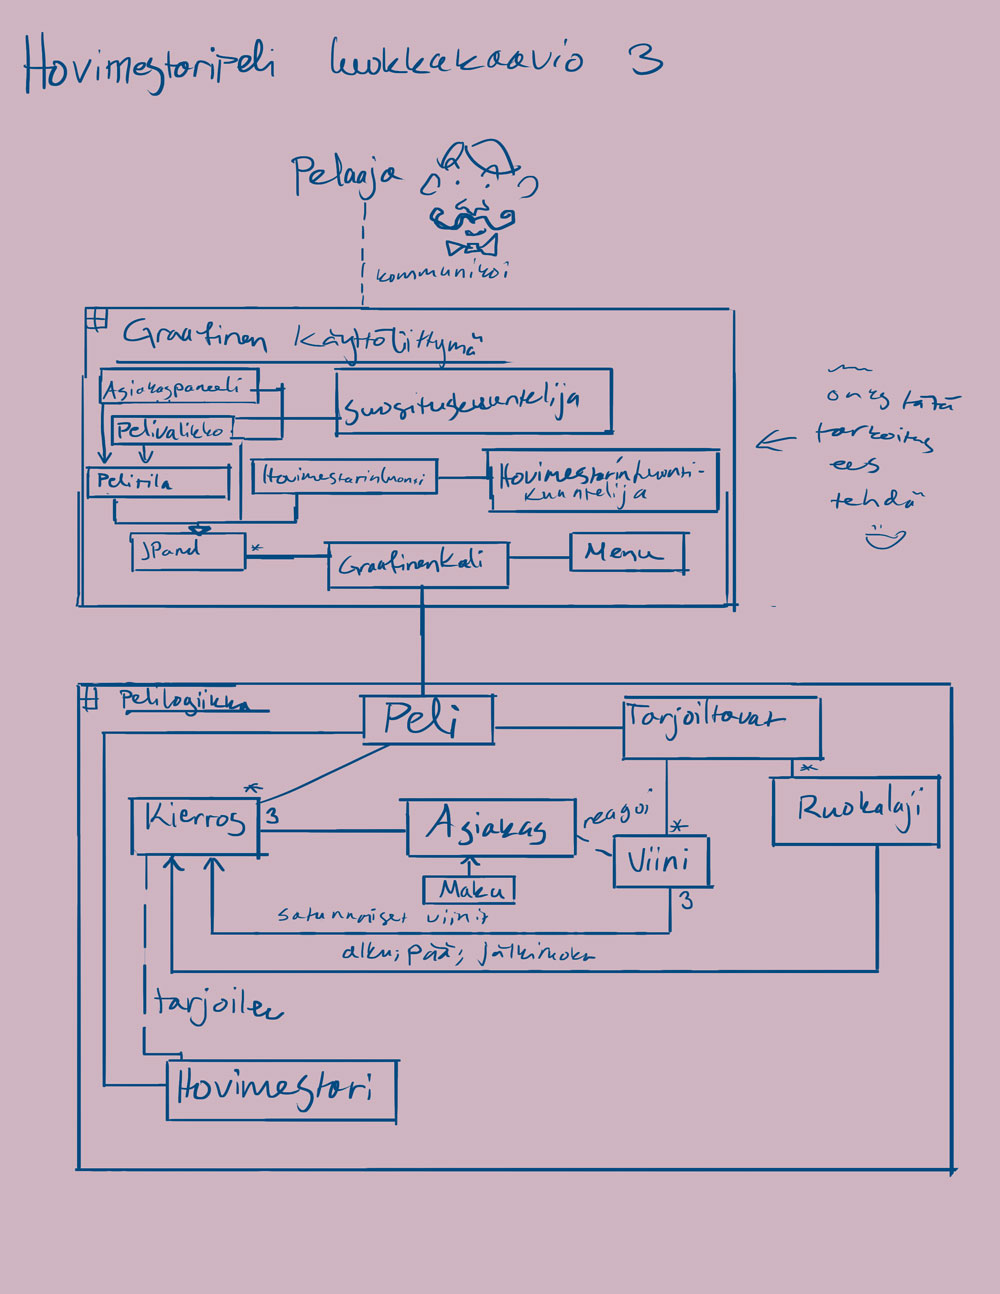 Hovimestaripeli luokkakaavio 3
Pelaaja
kommunikoi
Graafinen Käyttöliittymä
Asiakaspaneeli
Suosituskuuntelija
Pelivalikko
Pelitila
Hovimestarinluonti
Hovimestarinluonti-
kuuntelija
JPanel
*
GraafinenKali
Menu
onks tätä
tarkoitus
ees
tehdä
Pelilogiikka
Peli
Tarjoiltavat
*
*
Kierros
3
Asiakas
reagoi
*
Viini
3
Ruokalaji
Maku
satunnaiset viinit
alku; pää; jälkiruoka
tarjoilee
Hovimestari